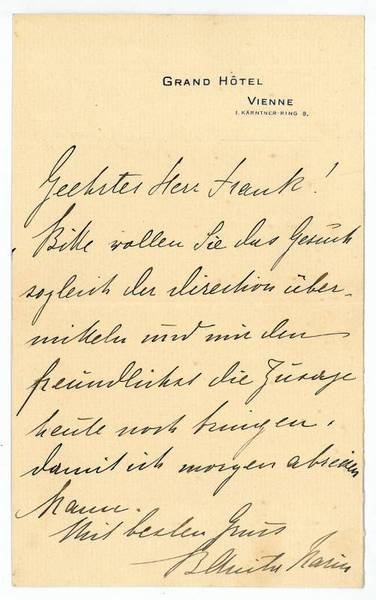 GRAND HÔTEL
VIENNE
I. KÄRNTNER-RING 9.
Geehrter Herr Frank!
Bitte wollen Sie das Gesuch
sogleich der Direction über-
mitteln und mir den
freundlichst die Zusage
heute noch bringen,
damit ich morgen abreisen
kann.
Mit besten Gruss